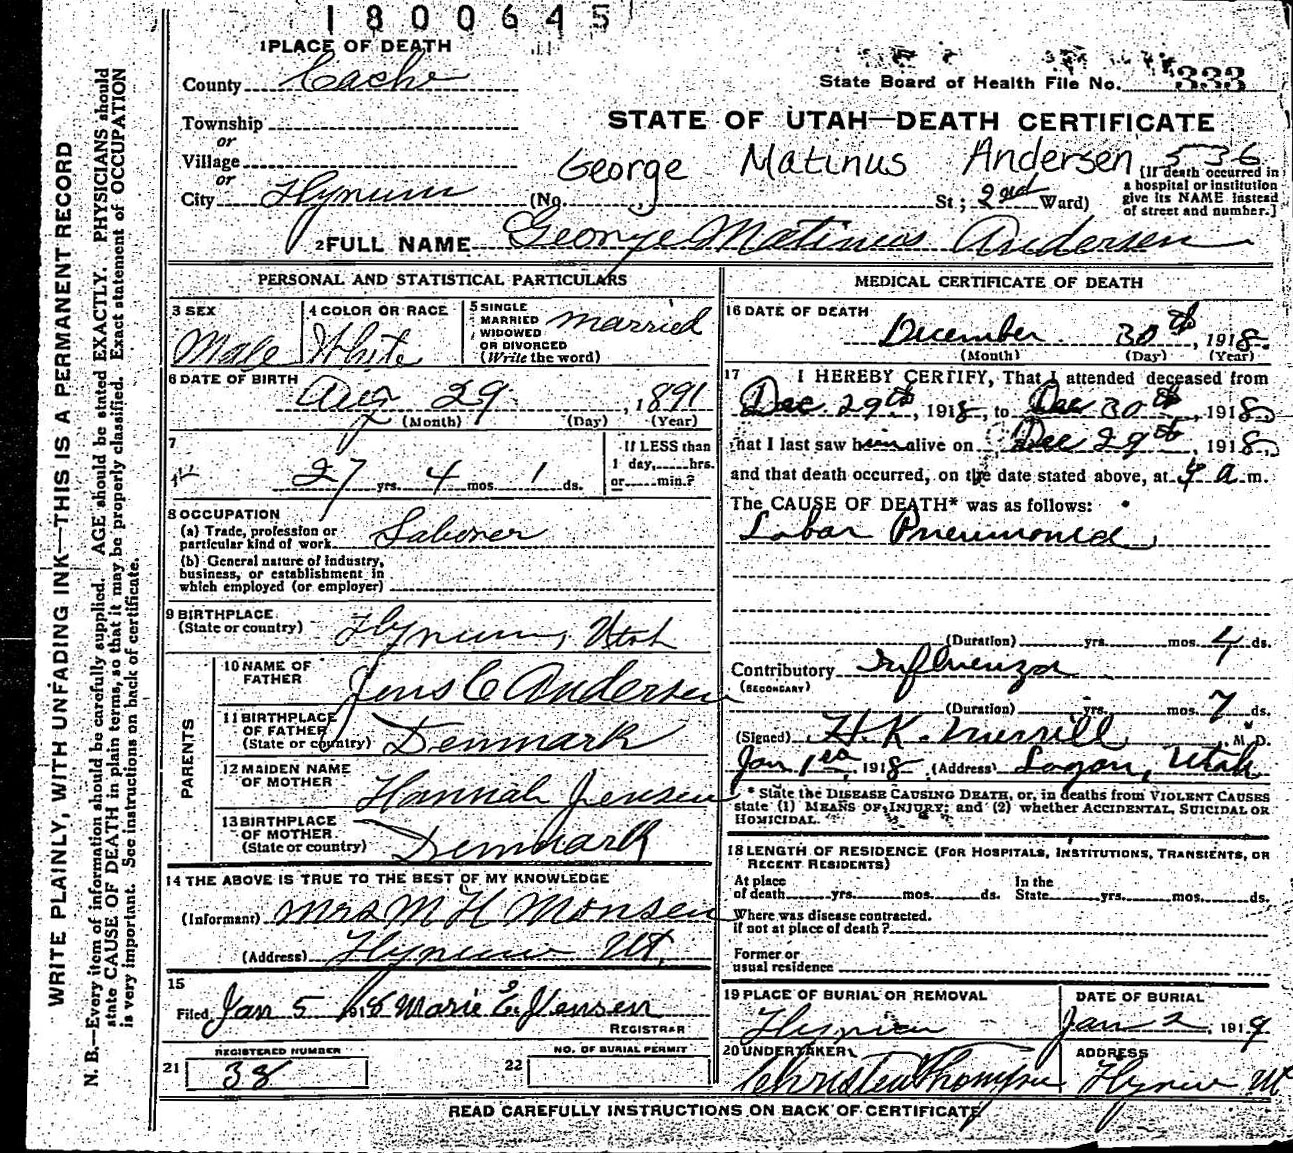 1800645
1 PLACE OF DEATH
County Cache
State Board of Health File No. 333
Township
STATE OF UTAH—DEATH CERTIFICATE
or
Village
George Matinus Andersen 536
or
City Hyrum (No. St; 2nd Ward)
[If death occurred in
a hospital or institution
give its NAME instead
of street and number.]
2 FULL NAME George Matinus Andersen
PERSONAL AND STATISTICAL PARTICULARS
3 SEX
Male
4 COLOR OR RACE
White
5 SINGLE
MARRIED
WIDOWED
OR DIVORCED
(Write the word)
married
6 DATE OF BIRTH
Aug 29, 1891
(Month) (Day) (Year)
7
27 yrs. 4 mos. 1 ds.
If LESS than
1 day, hrs.
or min.?
8 OCCUPATION
(a) Trade, profession or
particular kind of work Laborer
(b) General nature of industry,
business, or establishment in
which employed (or employer)
9 BIRTHPLACE
(State or country) Hyrum, Utah
PARENTS
10 NAME OF
FATHER Jens C Andersen
11 BIRTHPLACE
OF FATHER
(State or country) Denmark
12 MAIDEN NAME
OF MOTHER Hannah Jensen
13 BIRTHPLACE
OF MOTHER
(State or country) Denmark
14 THE ABOVE IS TRUE TO THE BEST OF MY KNOWLEDGE
(Informant) Mrs M H Monsen
(Address) Hyrum Ut.
15
Filed Jan 5 Marie E. Jensen
REGISTRAR
21 REGISTERED NUMBER
38
22 NO. OF BURIAL PERMIT
MEDICAL CERTIFICATE OF DEATH
16 DATE OF DEATH
December 30th, 1918.
(Month) (Day) (Year)
17 I HEREBY CERTIFY, That I attended deceased from
Dec 29th, 1918, to Dec 30th, 1918,
that I last saw him alive on Dec 29th, 1918,
and that death occurred, on the date stated above, at 4 a.m.
The CAUSE OF DEATH* was as follows:
Lobar Pneumonia
(Duration) yrs. mos. 4 ds.
Contributory Influenza
(SECONDARY)
(Duration) yrs. mos. 7 ds.
(Signed) H. K. Merrill, M.D.
Jan 1, 1918 (Address) Logan, Utah
* State the DISEASE CAUSING DEATH, or, in deaths from VIOLENT CAUSES
state (1) MEANS OF INJURY; and (2) whether ACCIDENTAL, SUICIDAL OR
HOMICIDAL.
18 LENGTH OF RESIDENCE (FOR HOSPITALS, INSTITUTIONS, TRANSIENTS, OR
RECENT RESIDENTS)
At place
of death yrs. mos. ds.
In the
State yrs. mos. ds.
Where was disease contracted.
if not at place of death?
Former or
usual residence
19 PLACE OF BURIAL OR REMOVAL
Hyrum
DATE OF BURIAL
Jan 2, 1919
20 UNDERTAKER
ADDRESS
Hyrum Ut
READ CAREFULLY INSTRUCTIONS ON BACK OF CERTIFICATE
WRITE PLAINLY, WITH UNFADING INK—THIS IS A PERMANENT RECORD
N. B.—Every item of information should be carefully supplied. AGE should be stated EXACTLY. PHYSICIANS should
state CAUSE OF DEATH in plain terms, so that it may be properly classified. Exact statement of OCCUPATION
is very important. See instructions on back of certificate.